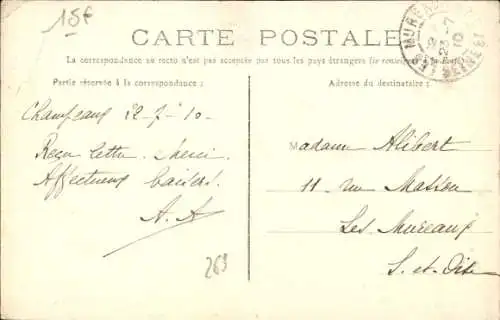 15f
CARTE POSTALE
La correspondance au recto n'est pas acceptée par tous les pays étrangers (se renseigner à la Poste)
Partie réservée à la correspondance :
Adresse du destinataire :
Champeaux 22-7-10-
Reçu lettre. Merci.
Affectueux baisers.
A. A
Madame Alibert
11 rue Masson
Les Mureaux
S. et Oise
269